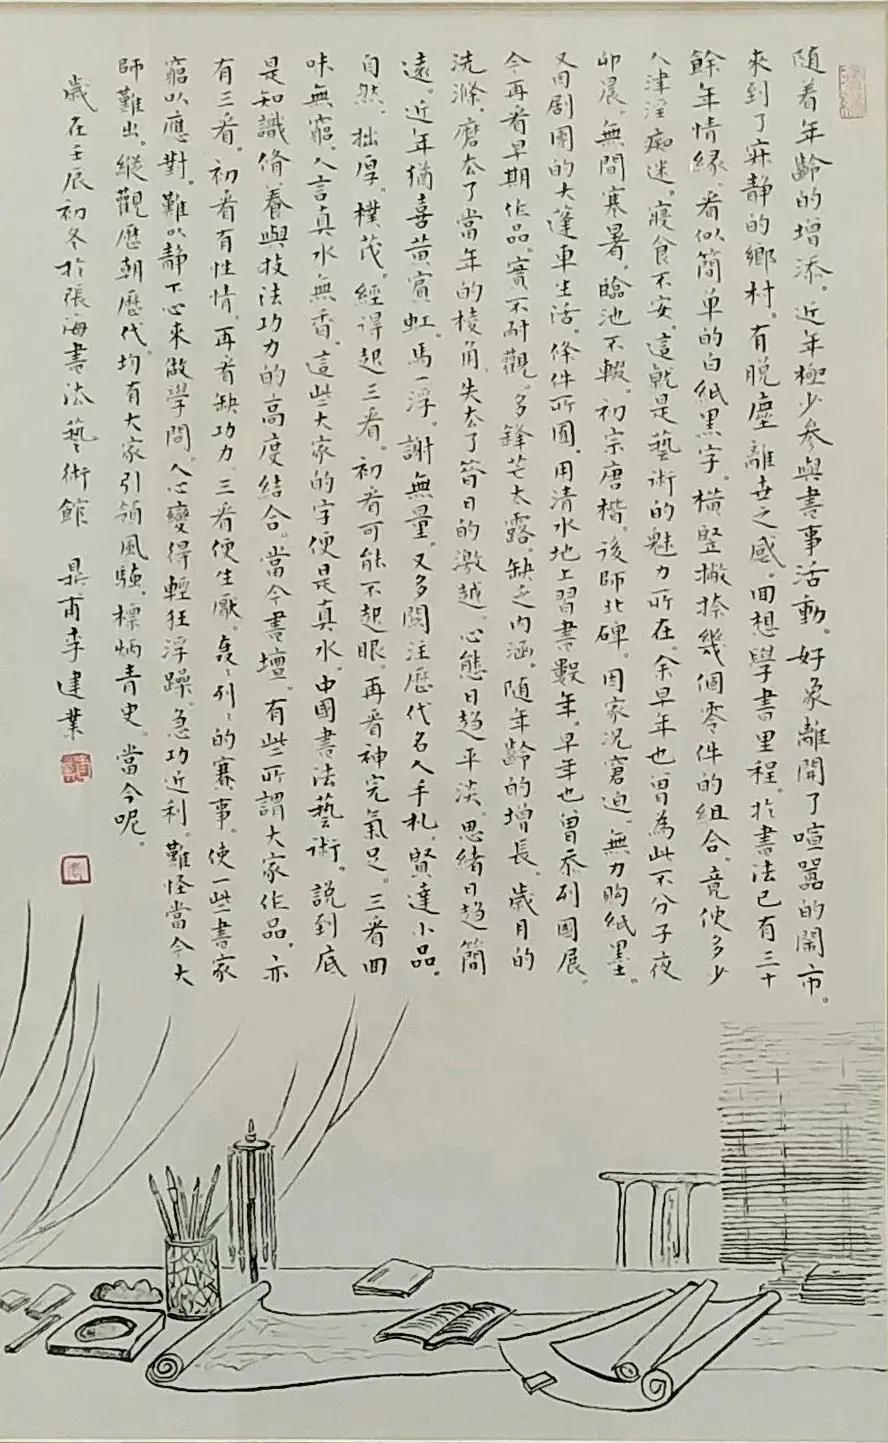 随着年齡的增添。近年極少參與書事活動。好象離開了喧囂的鬧市。
來到了寂静的鄉村。有脱塵離世之感。回想學書里程。於書法已有三十
餘年情緣。看似簡单的白紙黑字。横竪撇捺幾個零件的組合。竟使多少
人津淫痴迷。寢食不安。這就是藝術的魅力所在。余早年也曾為此不分子夜
卯晨。無間寒暑。臨池不輟。初宗唐楷。後師北碑。因家况窘迫。無力购紙墨。
又因剧團的大蓬車生活。條件所囿。用清水地上習書數年。早年也曾忝列國展。
今再看早期作品。實不耐觀。多鋒芒太露。缺乏内涵。随年齡的增長。歲月的
洗滌。磨去了當年的棱角。失去了昔日的激越。心態日趋平淡。思緒日趋簡
遠。近年獨喜黄賓虹。馬一浮。謝無量。又多関注歷代名人手札。賢達小品。
自然。拙厚。樸茂。經得起三看。初看可能不起眼。再看神完氣足。三看回
味無窮。人言真水無香。這些大家的字便是真水。中國書法藝術。説到底
是知識脩養與技法功力的高度結合。當今書壇。有些所謂大家作品。亦
有三看。初看有性情。再看缺功力。三看便生厭。轰轰列列的賽事。使一些書家
窮以應對。難以静下心來做學問。人心變得輕狂浮躁。急功近利。難怪當今大
師難出。縱觀歷朝歷代。均有大家引領風騷。標炳青史。當今呢。
歲在壬辰初冬於張海書法藝術館 鼎甫李建業